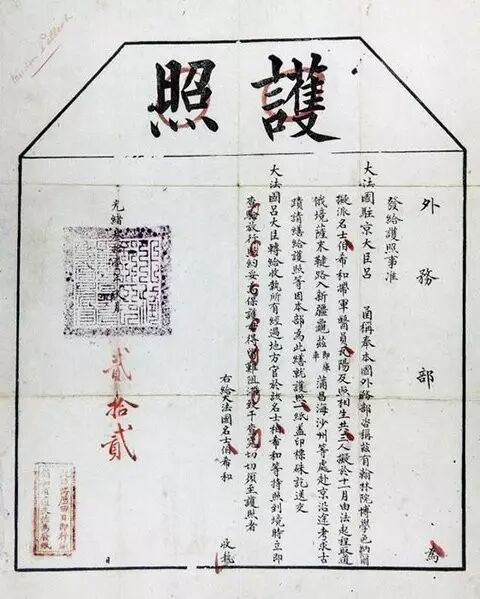 護照
外務部 為
發給護照事准
大法國駐京大臣呂 函稱奉本國外務部咨稱茲有翰林院博學色納爾
擬派名士伯希和攜軍醫員瓦陽及照相生共三人擬於十一月由法起程取道
俄境薩末鞬路入新疆龜茲即庫車蒲昌海沙州等處赴京沿途考求古
蹟請繕給護照等因本部為此繕就護照一紙蓋印標硃訖送交
大法國呂大臣轉給收執所有經過地方官於該名士伯希和等持照到境時立即
查驗放行照約妥為保護毋得留難阻滯致干查究切切須至護照者
右給大法國名士伯希和 收執
光緒叁拾壹年 月
貳拾貳
日